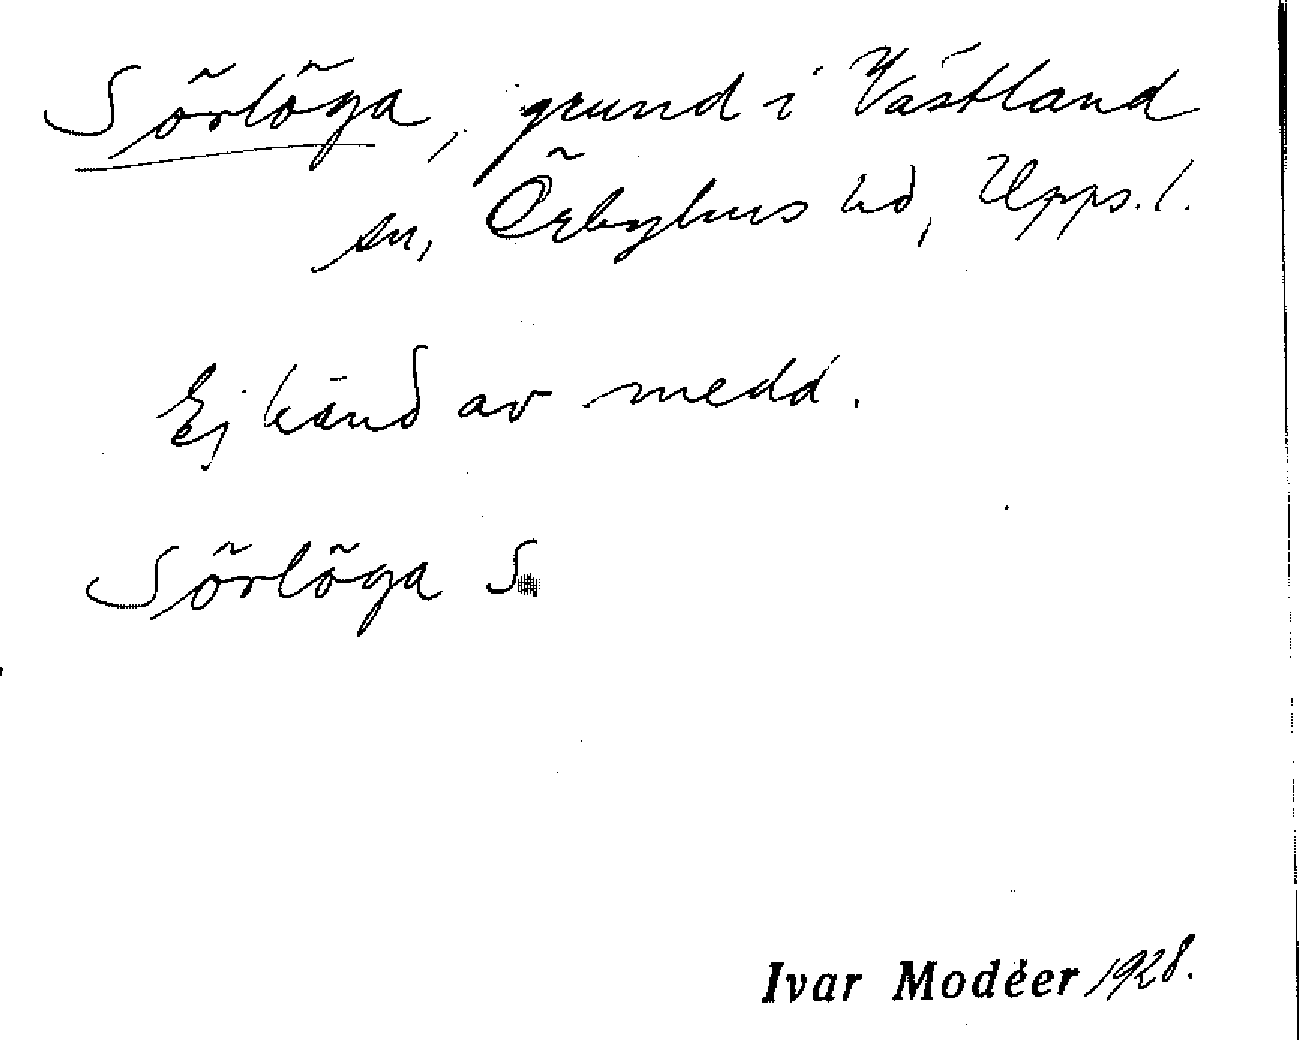 Sörlöga, grund i Västland
sn, Örbyhus hd, Upps. l.
Ej känd av medd.
Sörlöga S.
Ivar Modéer 1928.